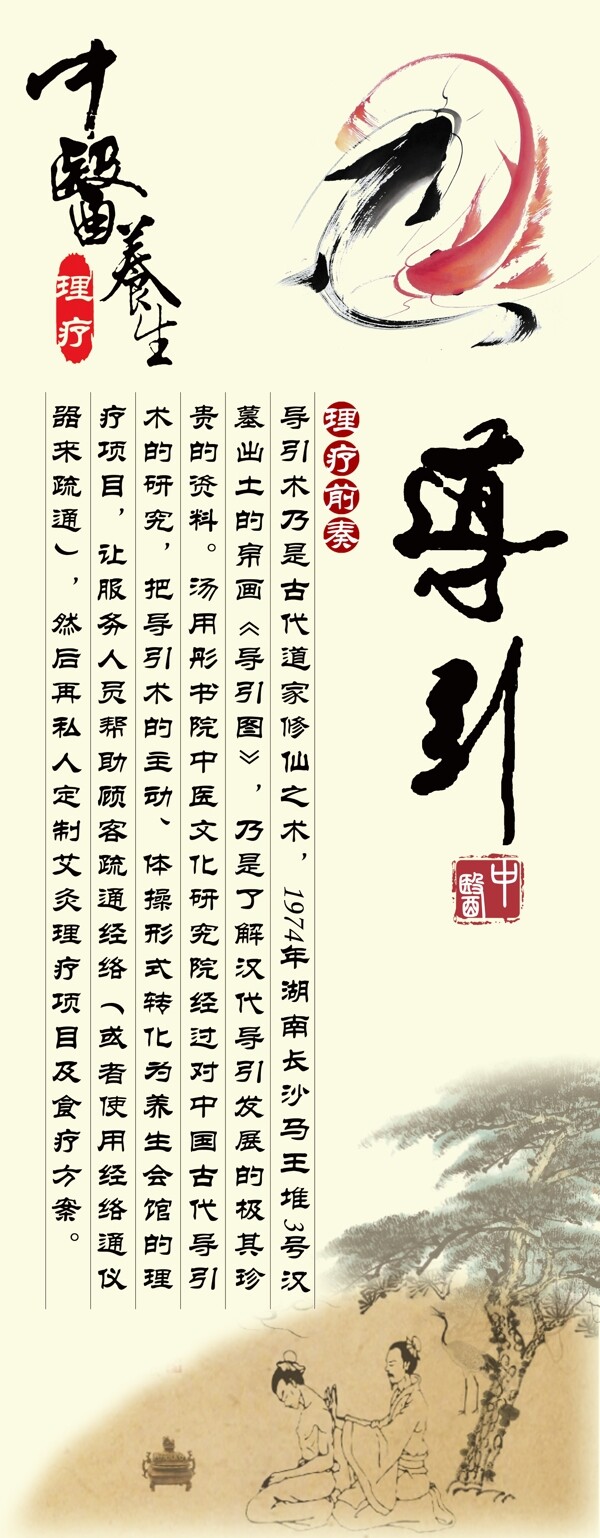 中醫養生
理疗
導引
中醫
理疗前奏
导引术乃是古代道家修仙之术，1974年湖南长沙马王堆3号汉
墓出土的帛画《导引图》，乃是了解汉代导引发展的极其珍
贵的资料。汤用彤书院中医文化研究院经过对中国古代导引
术的研究，把导引术的主动、体操形式转化为养生会馆的理
疗项目，让服务人员帮助顾客疏通经络（或者使用经络通仪
器来疏通），然后再私人定制艾灸理疗项目及食疗方案。